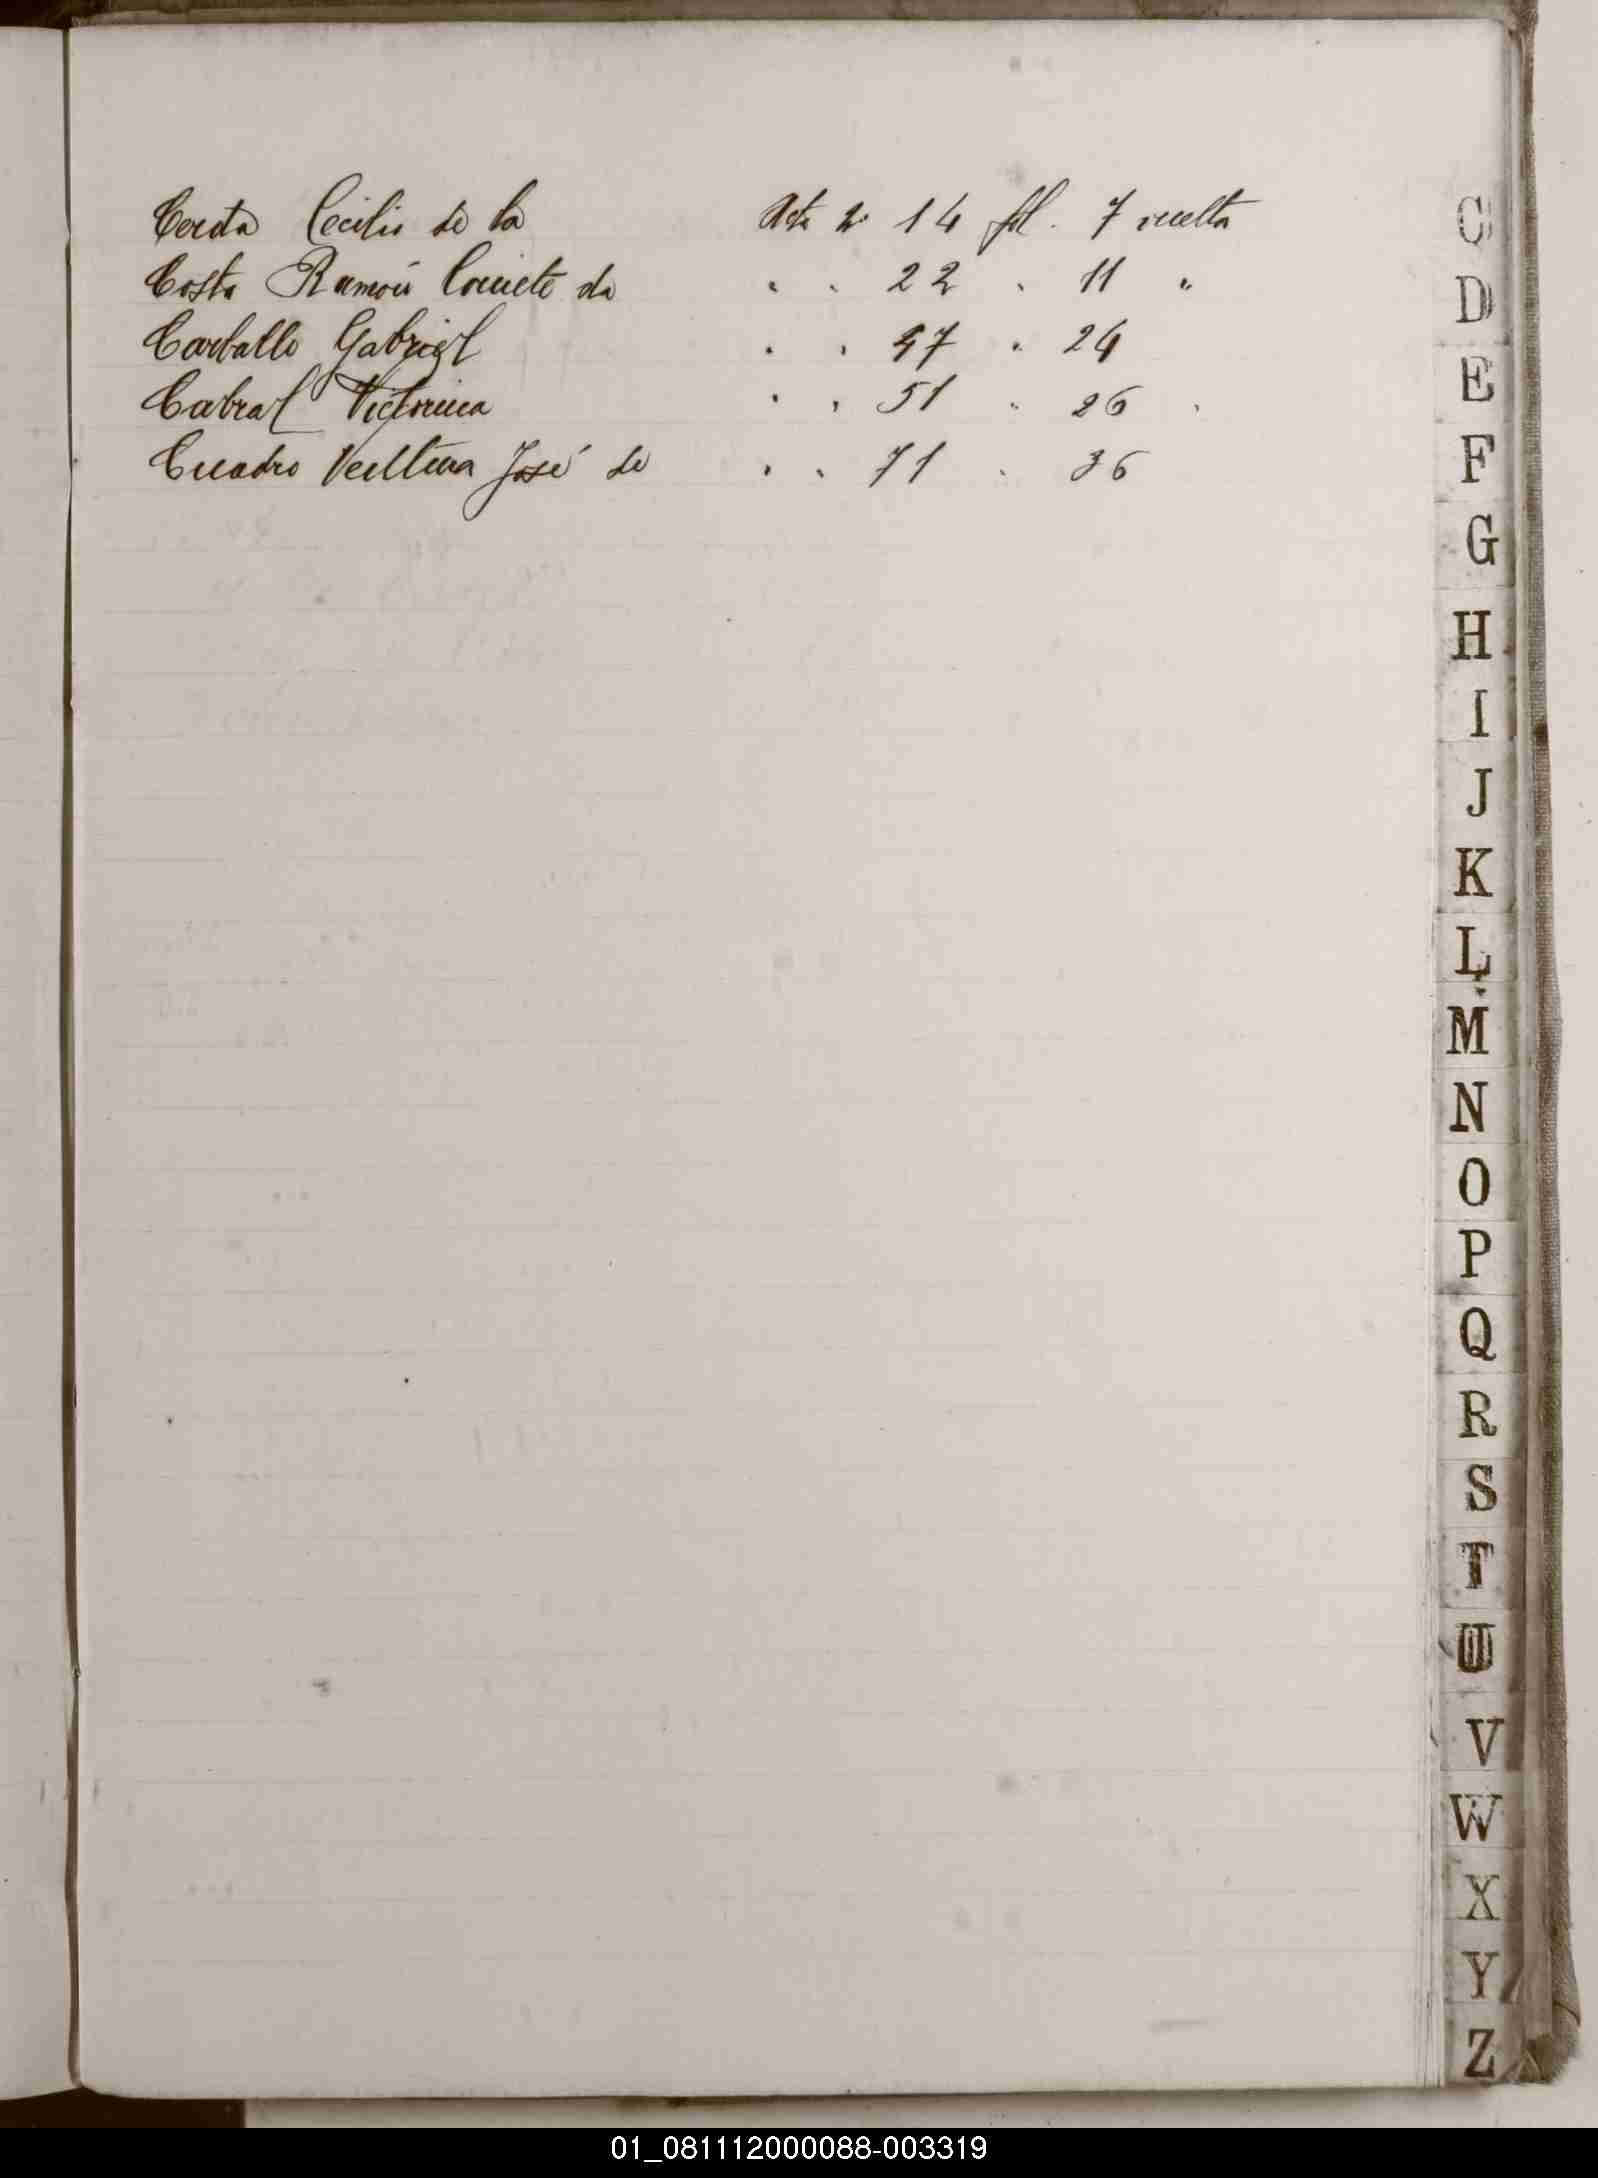 Cerda Cecilio de la Acta Nº 14 fol. 7 vuelta
Costa Ramón da " " 22 " 11 "
Carballo Gabriel " " 47 " 24
Cabral Victorina " " 51 " 26 "
Cuadro Ventura José de " " 71 " 36
C
D
E
F
G
H
I
J
K
L
M
N
O
P
Q
R
S
T
U
V
W
X
Y
Z
01_081112000088-003319